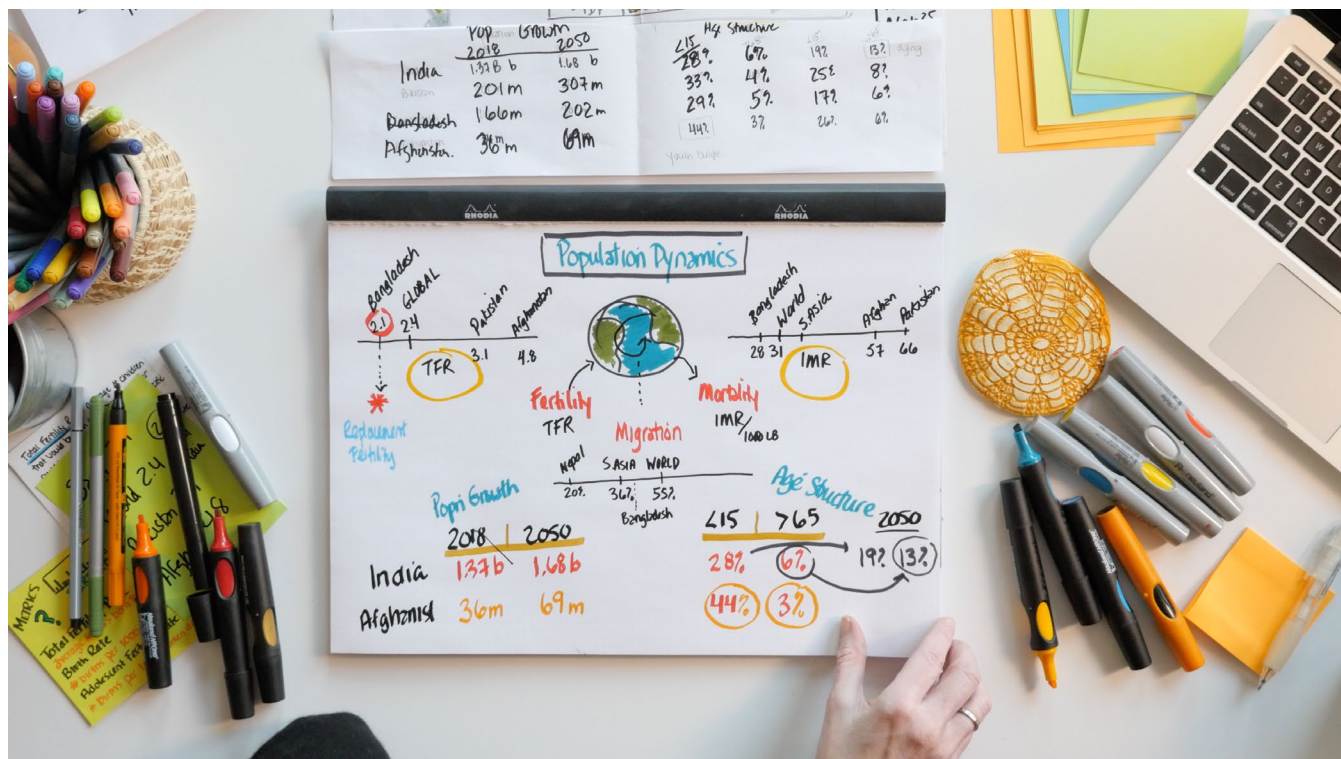 Pop Growth
2018 2050
India 1.37B b 1.68 b
201m 307m
Bangladesh 166m 202m
Afghanistan. 36m 69m
Age Structure
<15
28% 6% 19% 13% aging
33% 4% 25% 8%
29% 5% 17% 6%
44% 3% 26% 6%
youth bulge
RHODIA RHODIA
Population Dynamics
Bangladesh GLOBAL Pakistan Afghanistan
2.1 2.4 3.1 4.8
TFR
Replacement
Fertility
Bangladesh World S.ASIA Afghan Pakistan
28 31 57 66
IMR
Fertility
TFR
Migration
Mortality
IMR/1000 LB
Nepal S.ASIA WORLD
20% 36% 55%
Bangladesh
Pop'n Growth
2018 2050
India 1.37b 1.68b
Afghanist 36m 69m
Age Structure
<15 >65 2050
28% 6% 19% 13%
44% 3%
Total Fertility R
that would b
2.4
4.8
METRICS
?
Total Fert
Birth Rate
# births per 1000
Adolescent Fert
# births per